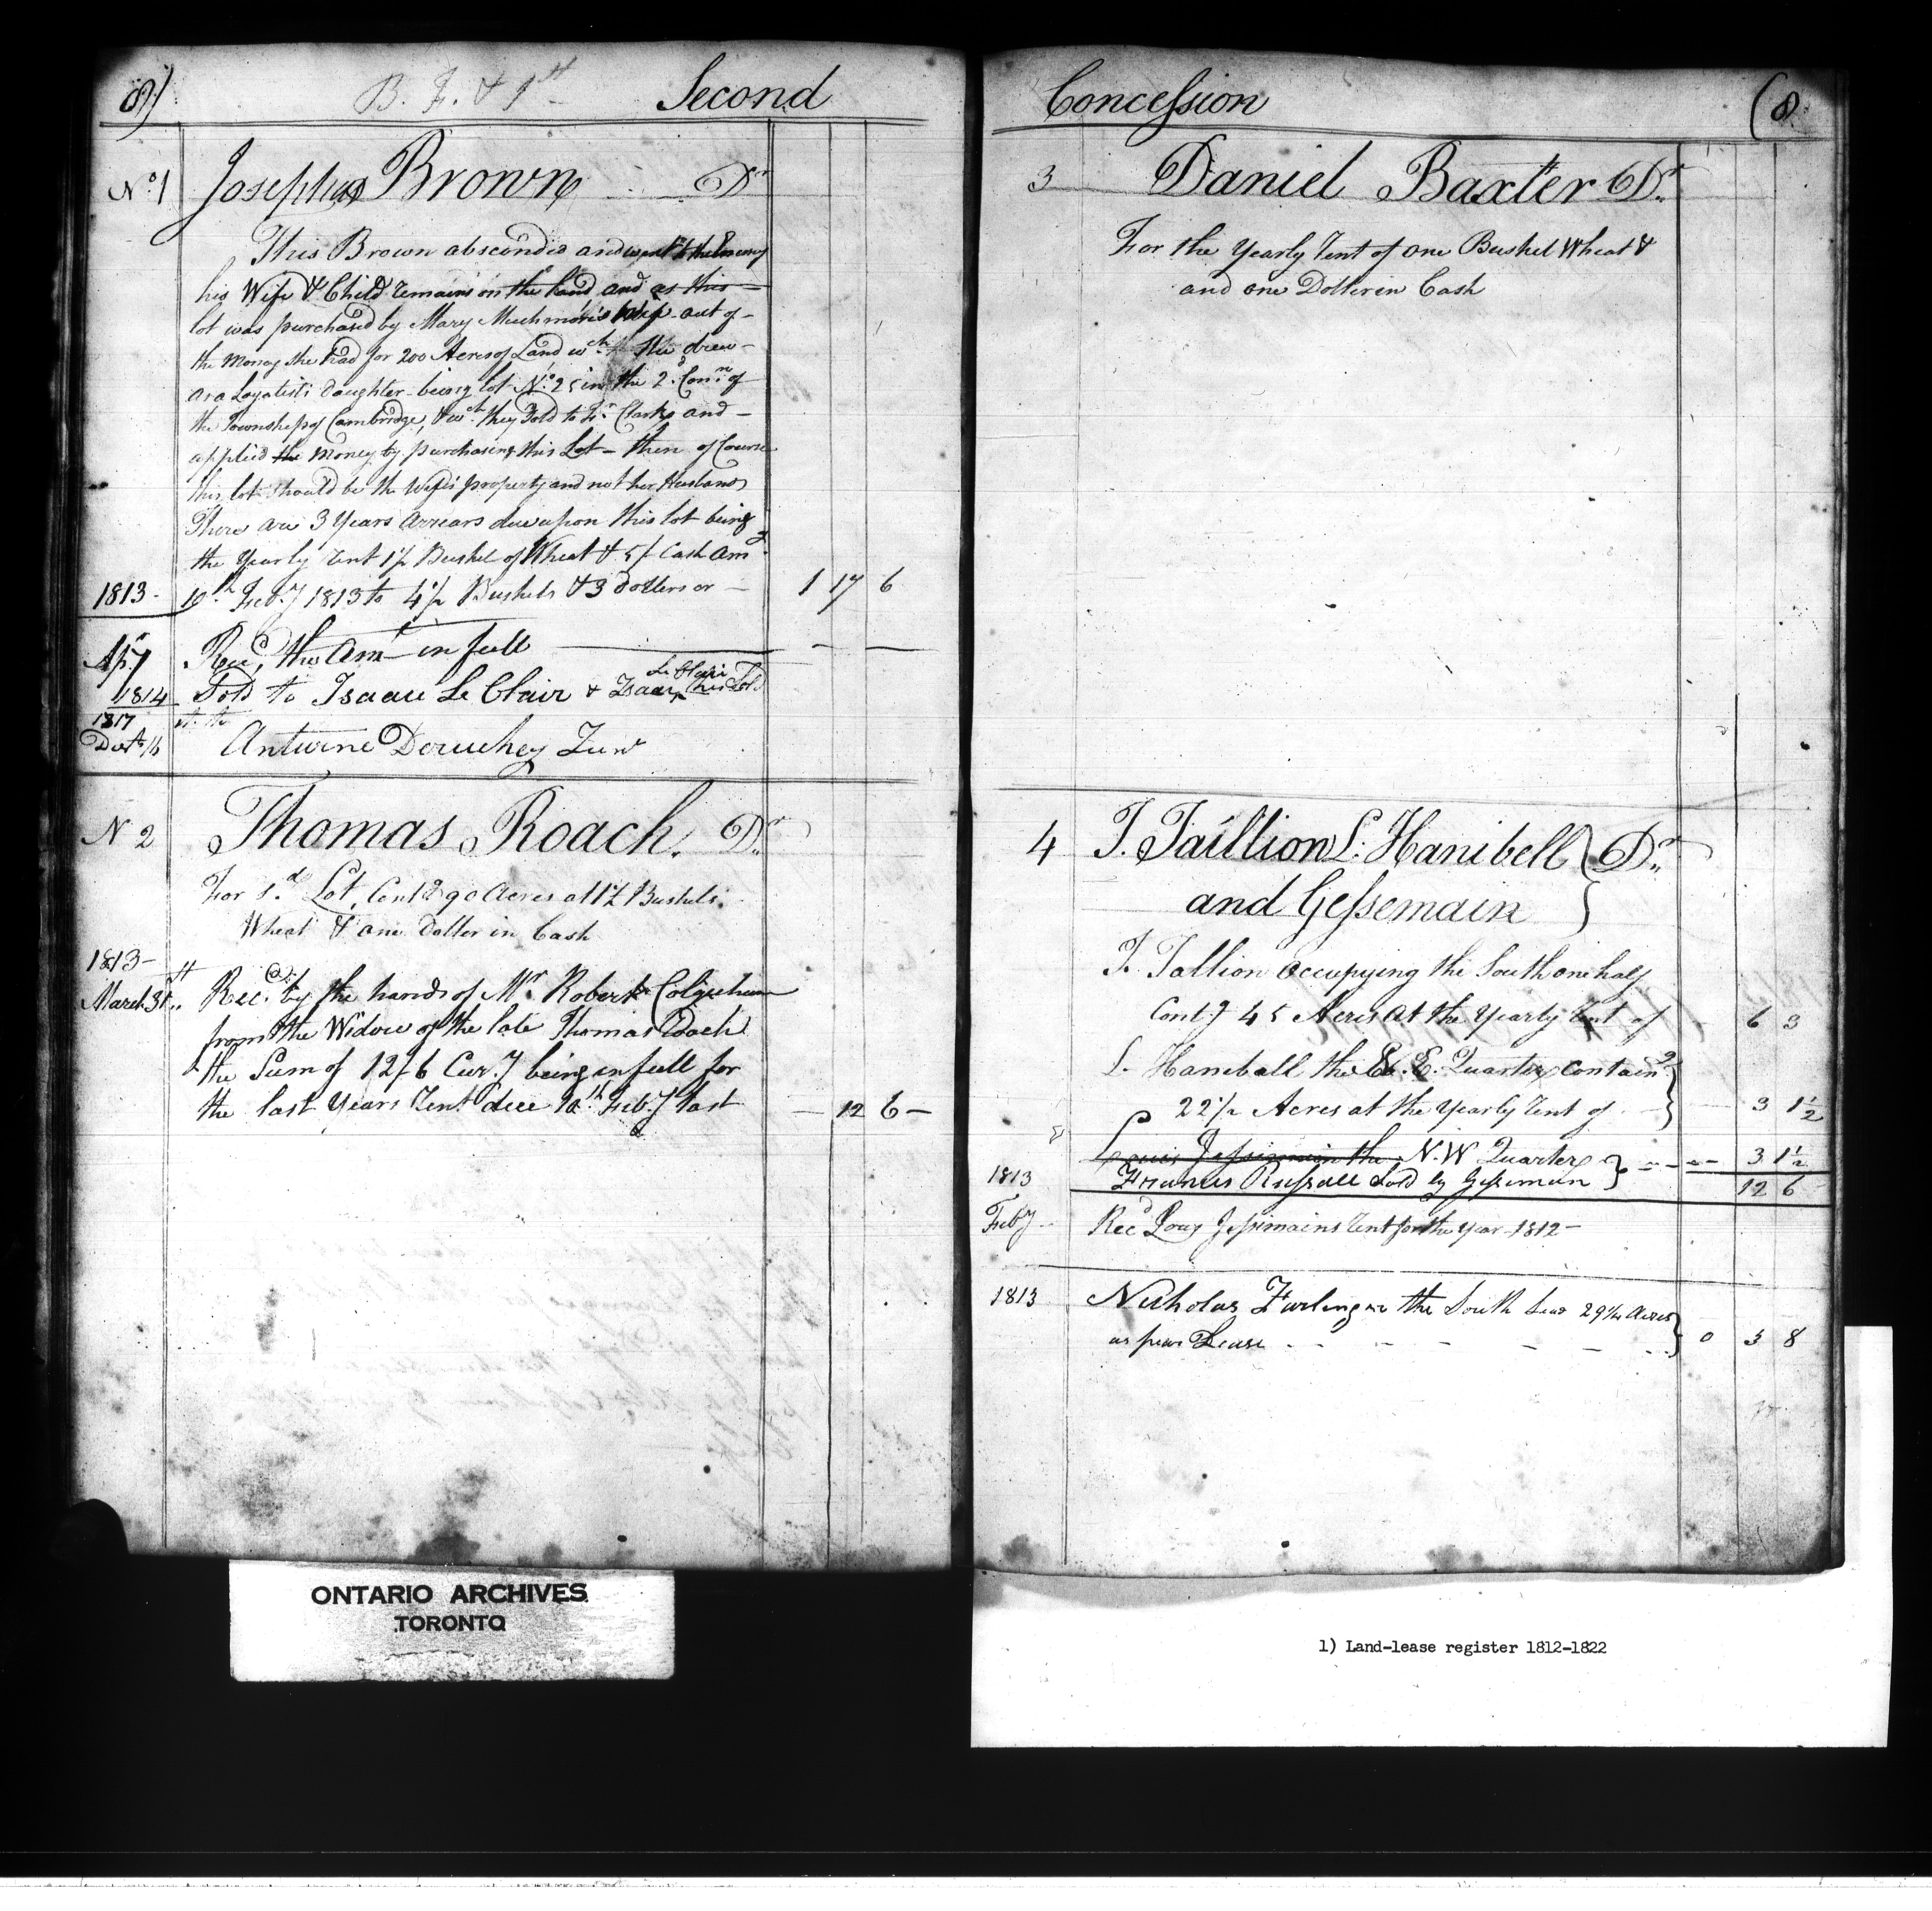 8) B. F. & 1st Second
No. 1 Josephus Brown Dr
This Brown absconded and went to the Enemy
his Wife & Child remains on the land and as this
lot was purchased by Mary Muchmore's out of
the money she had for 200 Acres of Land wch. she drew
as a Loyalist's daughter being lot No. 25 in the 2d. Conn. of
the Township of Cambridge, & wch. they Sold to Clark, and
applied the money by purchasing this Lot - then of Course
this lot should be the Wife's property and not her Husband
There are 3 Years Arrears due upon this lot being
the Yearly Rent 1½ Bushel of Wheat & 5/ Cash Amg
1813 - 10th. Feb.y 1813 to 4½ Bushels & 3 dollers or - 1 17 6
Ap. 7 Recd. the Amt in full
1814 Sold to Isaac Le Clair & Isaac Le Clair has Sold
1817 it to
Antuine Deruchey Junr
N 2 Thomas Roach. Dr
For sd. Lot, Cont.g 90 Acres at 1½ Bushels
Wheat & one Doller in Cash
1813 -
March 31st.. Recd. by the hands of Mr. Robert Colquhoun
from the Widow of the late Thomas Roach
the Sum of 12/6 Cur.y being in full for
the last Years Rent due 10th Feb.y last - 12 6 -
Concession (8
3 Daniel Baxter Dr
For the Yearly Rent of one Bushel Wheat &
and one Doller in Cash
4 J. Taillion L. Hanibell } Dr
and Gessemain
J. Tallion occupying the South one half
Cont.g 45 Acres at the Yearly Rent of 6 3
L. Haneball the E. Quarter Containg
22½ Acres at the Yearly Rent of - 3 1½
Louis Jessimain the N.W Quarter } - - - 3 1½
1813 Francis Russell Sold by Gesseman 12 6
Feb.y - Recd Louy Jessimains Rent for the Year 1812 -
1813 Nicholas Furlinger the South 29½ Acres
as pear Lease - - - - - } 0 3 8
ONTARIO ARCHIVES
TORONTO
1) Land-lease register 1812-1822